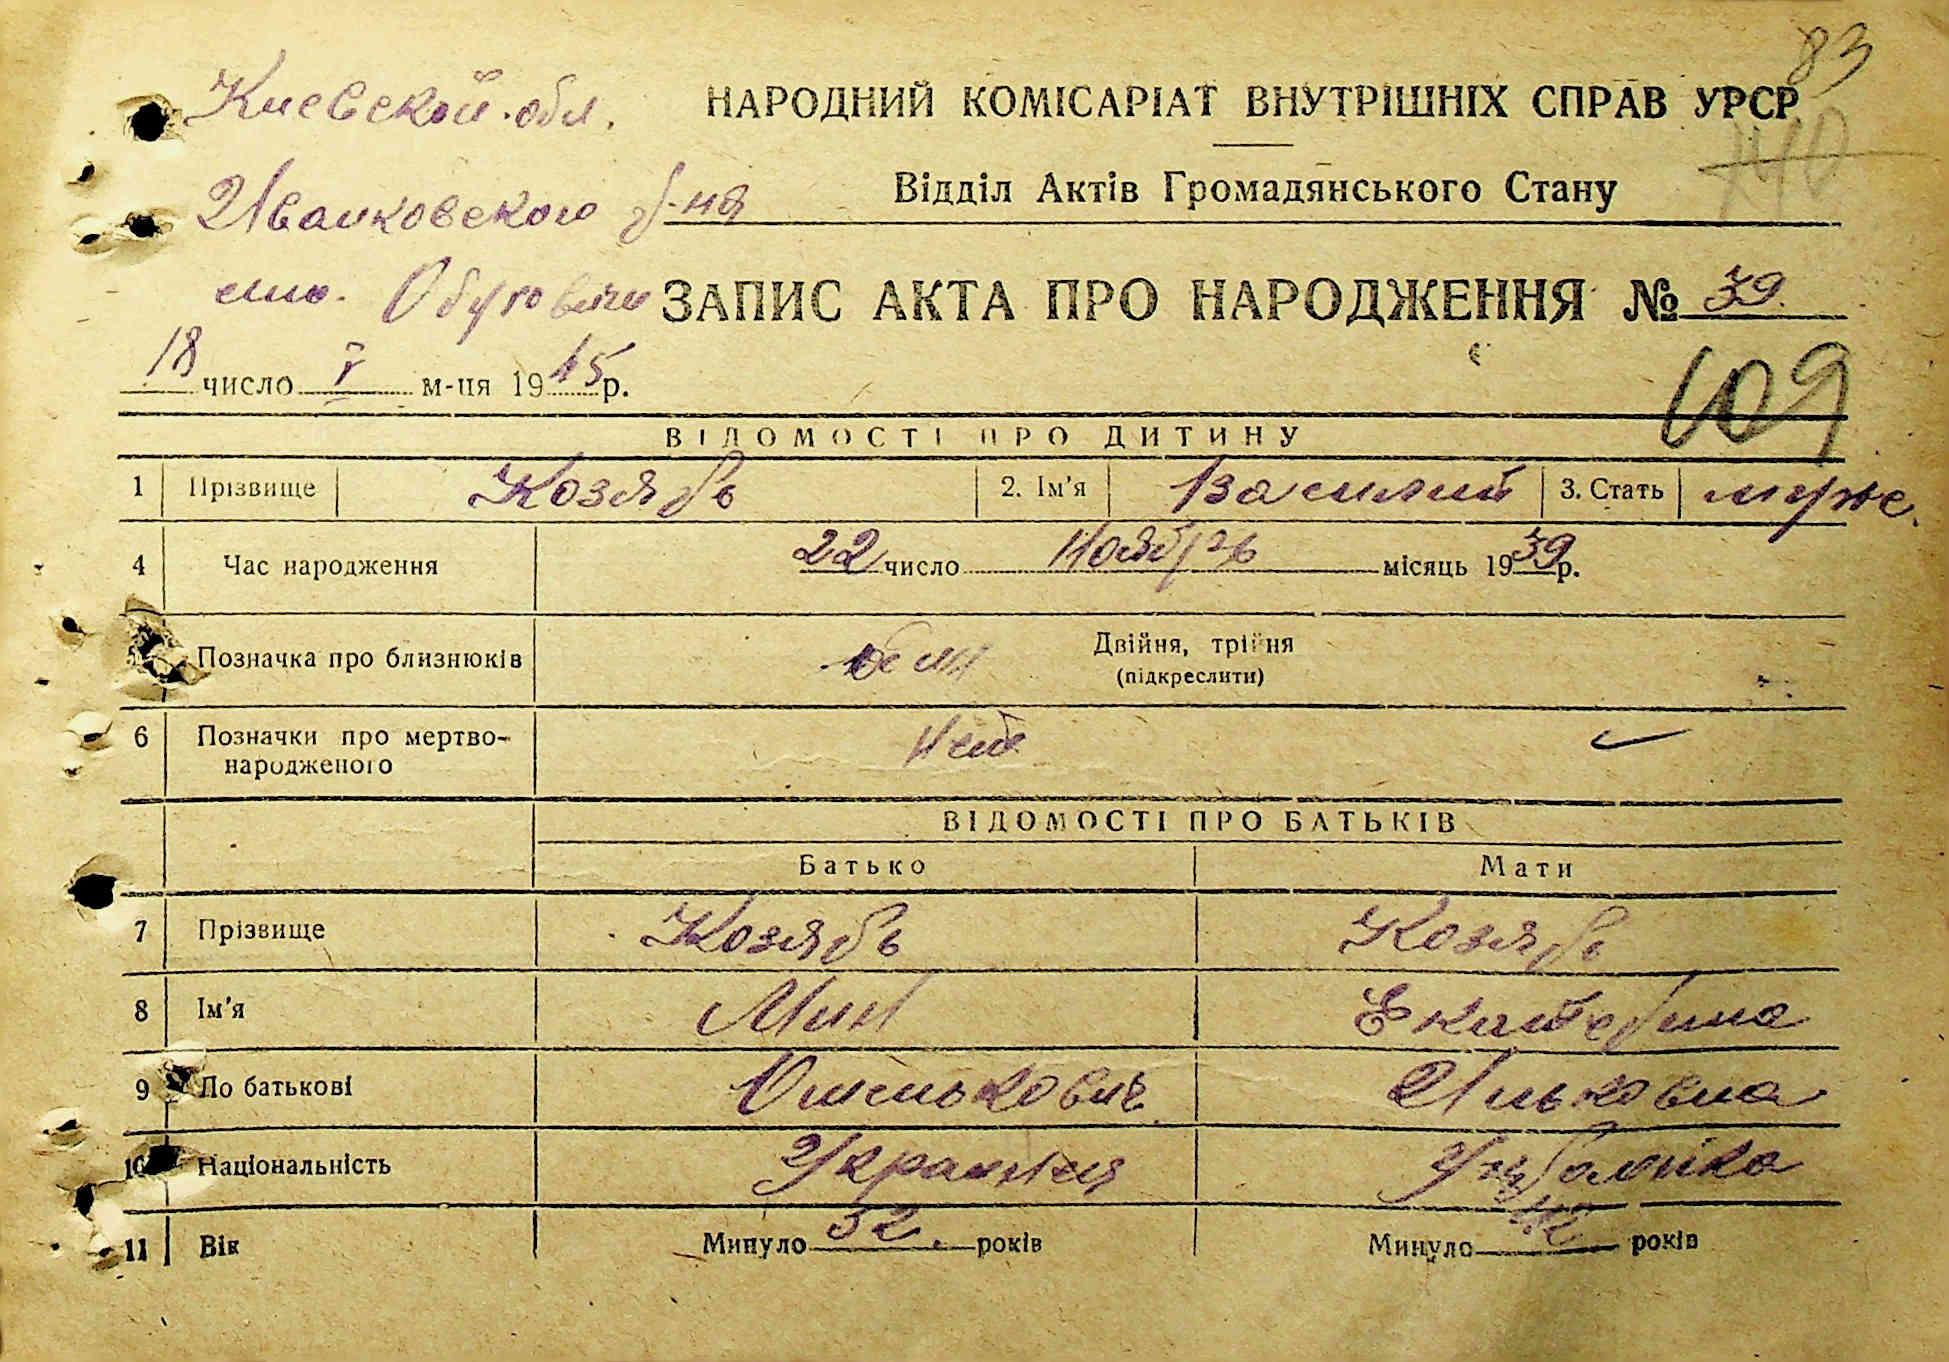 83
Киевской обл.
НАРОДНИЙ КОМІСАРІАТ ВНУТРІШНІХ СПРАВ УРСР
140
Иванковского р-на
Відділ Актів Громадянського Стану
ело. Обуховичи
ЗАПИС АКТА ПРО НАРОДЖЕННЯ № 39.
18 число V м-ця 1945 р.
109
ВІДОМОСТІ ПРО ДИТИНУ
1 Прізвище Козярь 2. Ім'я Василий 3. Стать муже.
4 Час народження 22 число Ноября місяць 1939 р.
5 Позначка про близнюків Двійня, трійня
(підкреслити)
6 Позначки про мертво-
народженого Нет
ВІДОМОСТІ ПРО БАТЬКІВ
Батько Мати
7 Прізвище Козярь Козярь
8 Ім'я Мин Екатерина
9 По батькові Омелькович Ильковна
10 Національність Украинец Украинка
11 Вік Минуло 52. років Минуло 42 років